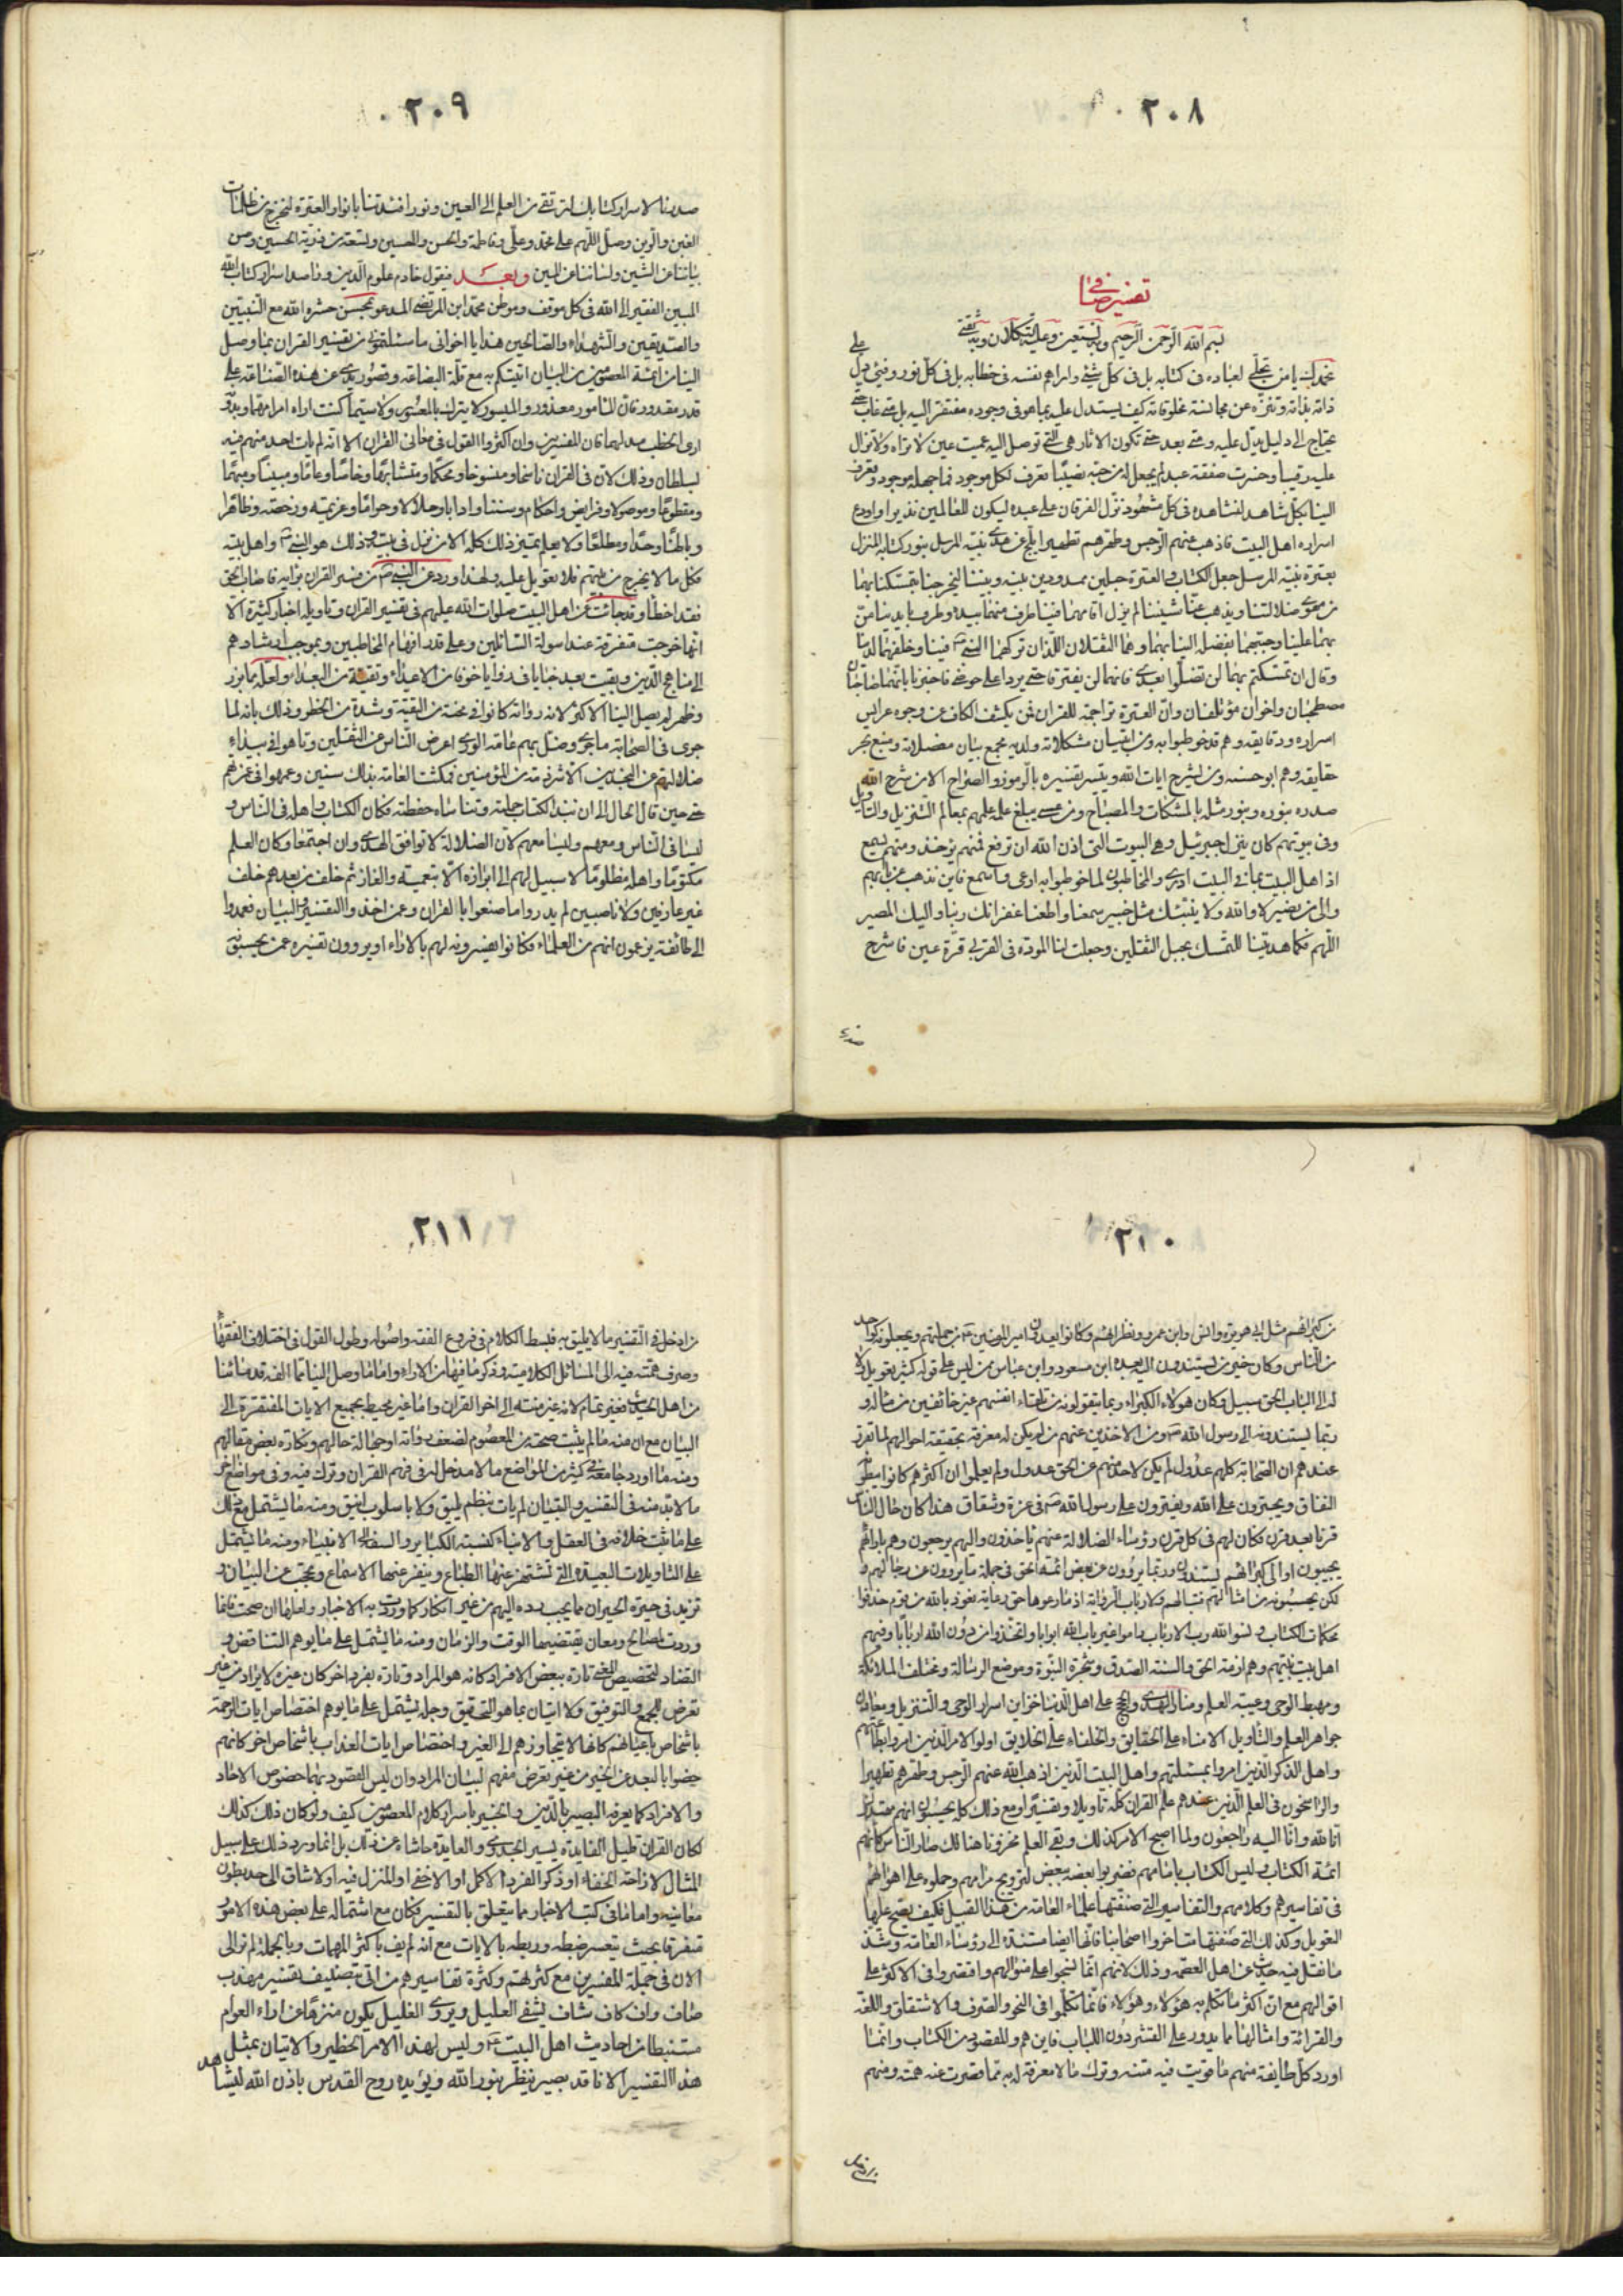 ٢٠٨
تفسير صافى
بسم الله الرحمن الرحيم وبه نستعين وعليه التكلان وبه ثقتى
نحمدك يا من تجلى لعباده فى كتابه بل فى كل شئ واراهم نفسه فى خطابه بل فى كل نور وفئ دل على
ذاته بذاته وتنزه عن مجانسة مخلوقاته كيف يستدل عليه بما هو فى وجوده مفتقر اليه بل متى غاب حتى
يحتاج الى دليل يدل عليه ومتى بعد حتى تكون الاثار هى التى توصل اليه عميت عين لا تراه ولا تزال
عليه رقيبا وخسرت صفقة عبد لم يجعل له من حبه نصيبا تعرف لكل موجود فما جهله موجود وتعرف
الينا بكل شاهد لنشاهده فى كل مشهود نزل الفرقان على عبده ليكون للعالمين نذيرا واودع
اسراره اهل البيت فاذهب عنهم الرجس وطهرهم تطهيرا ابلج عن هدى نبيه المرسل بنور كتابه المنزل
بعترة نبيه المرسل جعل الكتاب والعترة حبلين ممدودين بينه وبيننا ليخرجنا بتمسكنا بهما
من مهوى ضلالتنا ويذهب عنا شيننا لم يزل اقامهما فينا طرف منهما بيده وطرف بايدينا من
بهما علينا وحببهما بفضله الينا بهما وهما الثقلان اللذان تركهما النبى فينا وخلفهما لدينا
وقال ان تمسكتم بهما لن تضلوا بعدى فانهما لن يفترقا حتى يردا على حوضى فاخبرنا بانهما صاحبان
مصطحبان واخوان مؤتلفان وان العترة تراجمة للقران فمن يكشف الكاف عن وجوه عرايس
اسراره ودقايقه وهم قد خوطبوا به ومن لتبيان مشكلاته ولديهم مجمع بيان معضلاته ومنبع بحر
حقايقه وهم ابو حسنه ومن يشرح ايات الله ويتيسر تفسيره بالرموز والصراح الا من شرح الله
صدره بنوره وبنور مثله بالمشكات والمصباح ومن عسى يبلغ علمه علمهم بمعالم التنزيل والتاويل
وفى بيوتهم كان ينزل جبرئيل وهى البيوت التى اذن الله ان ترفع فمنهم يؤخذ ومنهم يسمع
اذ اهل البيت بما فى البيت ادرى والمخاطبون لما خوطبوا به اوعى وما نسمع فاين نذهب عن بابهم
والى من نصير لا والله ولا ينبئك مثل خبير سمعنا واطعنا غفرانك ربنا واليك المصير
اللهم فكما هديتنا للتمسك بحبل الثقلين وجعلت لنا المودة فى القربى قرة عين فاشرح
صدرنا
٢٠٩
صدرنا لاسرار كتابك لنرتقى من العلم الى العين ونور افئدتنا بانوار العترة لنخرج من ظلمات
الغين والرين وصل اللهم على محمد وعلى وفاطمة والحسن والحسين وتسعة من ذرية الحسين وصن
بياننا عن الشين ولساننا عن المين وبعد فيقول خادم علوم الدين وراصد اسرار كتاب الله
المبين الفقير الى الله فى كل موقف وموطن محمد ابن المرتضى المدعو بمحسن حشره الله مع النبيين
والصديقين والشهداء والصالحين هذا يا اخوانى ما سئلتمونى من تفسير القران بما وصل
الينا من ائمة المعصومين من البيان اتيتكم به مع قلة البضاعة وقصور يدى عن هذه الصناعة على
قدر مقدور فان المامور معذور والميسور لا يترك بالمعسور ولا سيما كنت اراه امرا مهما وبدونه
ارى الخطب مدلهما فان المفسرين وان اكثروا القول فى معانى القران الا انه لم يات احد منهم فيه
بسلطان وذلك لان فى القران ناسخا ومنسوخا ومحكما ومتشابها وخاصا وعاما ومبينا ومبهما
ومقطوعا وموصولا وفرايض واحكام وسننا وادابا وحلالا وحراما وعزيمة ورخصة وظاهرا
وباطنا وحدا ومطلعا ولا يعلم تميز ذلك كله الا من نزل فى بيته وذلك هو النبى واهل بيته
فكل ما لا يخرج من بيتهم فلا تعويل عليه ولهذا ورد عن النبى من فسر القران برايه فاصاب الحق
فقد اخطا وقد جائت عن اهل البيت صلوات الله عليهم فى تفسير القران وتاويله اخبار كثيرة الا
انها خرجت متفرقة عند اسولة السائلين وعلى قدر افهام المخاطبين وبموجب ارشادهم
الى مناهج الدين وبقيت بعد خبايا فى زوايا خوفا من الاعداء وتقية من البعداء ولعله مما برز
وظهر لم يصل الينا الاكثر لان رواته كانوا فى محنة من التقية وشدة من الخطر وذلك بانه لما
جرى فى الصحابة ما جرى وضل بهم عامة الورى اعرض الناس عن الثقلين وتاهوا فى بيداء
ضلالتهم عن النجدين الا شرذمة من المؤمنين فمكث العامة بذلك سنين وعمهوا فى غمرتهم
حتى حين فال الحال الى ان نبذ الكتاب حملته وتناساه حفظته فكان الكتاب واهله فى الناس و
ليسا فى الناس ومعهم وليسا معهم لان الضلالة لا توافق الهدى وان اجتمعا وكان العلم
مكتوما واهله مظلوما لا سبيل لهم الى ابرازه الا بتعميته والغازه ثم خلف من بعدهم خلف
غير عارفين ولا ناصبين لم يدروا ما صنعوا بالقران وعمن اخذوا التفسير والبيان فعمدوا
الى طائفة يزعمون انهم من العلماء فكانوا يفسرونه لهم بالاراء او يروون تفسيره عمن يحسبونه
٢١٠
من كبرائهم مثل ابى هريرة وانس وابن عمر ونظرائهم وكانوا يعدون امير المؤمنين من جملتهم ويجعلونه كواحد
من الناس وكان خير من يستندون اليه بعده ابن مسعود وابن عباس ممن ليس على قوله كثير تعويل ولا
له الى لباب الحق سبيل وكان هولاء الكبراء ربما يتقولونه من تلقاء انفسهم غير خائفين من ماله و
ربما يسندونه الى رسول الله ومن الاخذين عنهم من لم يكن له معرفة بحقيقة احوالهم لما تقرر
عندهم ان الصحابة كلهم عدول لم يكن لاحد منهم عن الحق عدول ولم يعلموا ان اكثرهم كانوا يبطنون
النفاق ويجترون على الله ويفترون على رسول الله فى عزة وشقاق هذا كان حال الناس
قرنا بعد قرن فكان لهم فى كل قرن رؤساء الضلالة عنهم ياخذون واليهم يرجعون وهم بارائهم
يجيبون او الى كبرائهم يستندون وربما يروون عن بعض ائمة الحق فى جملة ما يروون عن رجالهم و
لكن يحسبونه من امثالهم فتبا لهم ولارباب الرواية اذ ما رعوها حق رعاية نعوذ بالله من قوم حذفوا
محكمات الكتاب ونسوا الله رب الارباب راموا غير باب الله ابوابا واتخذوا من دون الله اربابا وفيهم
اهل بيت نبيهم وهم ازمة الحق والسنة الصدق وشجرة النبوة وموضع الرسالة ومختلف الملائكة
ومهبط الوحى وعيبة العلم ومنار الهدى والحجج على اهل الدنيا خزاين اسرار الوحى والتنزيل ومعادن
جواهر العلم والتاويل الامناء على الحقايق والخلفاء على الخلايق اولو الامر الذين امروا بطاعتهم
واهل الذكر الذين امروا بمسئلتهم واهل البيت الذين اذهب الله عنهم الرجس وطهرهم تطهيرا
والراسخون فى العلم الذين عندهم علم القران كله تاويلا وتفسيرا ومع ذلك كله يحسبون انهم مهتدون
انا لله وانا اليه راجعون ولما اصبح الامر كذلك وبقى العلم مخزونا هنالك صار الناس كانهم
ائمة الكتاب وليس الكتاب بامامهم فضربوا بعضه ببعض لترويج مرامهم وحملوه على اهوائهم
فى تفاسيرهم وكلامهم والتفاسير التى صنفتها علماء العامة من هذا القبيل فكيف يصح عليها
التعويل وكذلك التى صنفتها متاخروا اصحابنا فانها ايضا مستندة الى رؤساء العامة وشذ
ما نقل فيه حديث عن اهل العصمة وذلك لانهم انما نسجوا على منوالهم واقتصروا فى الاكثر على
اقوالهم مع ان اكثر ما تكلم به هؤلاء وهؤلاء فانما تكلموا فى النحو والصرف والاشتقاق واللغة
والقرائة وامثالها مما يدور على القشر دون اللباب فاين هم والمقصود من الكتاب وانما
اورد كل طايفة منهم ما قويت فيه منته وترك ما لا معرفة له به مما قصرت عنه همته ومنهم
من ادخل
٢١١
من ادخل فى التفسير ما لا يليق به فبسط الكلام فى فروع الفقه واصوله وطول القول فى اختلاف الفقهاء
وصرف همته فيه الى المسائل الكلامية وذكر ما فيها من الاراء واما ما وصل الينا مما الفه قدمائنا
من اهل الحديث فغير تمام لانه غير منته الى اخر القران واما غير محيط بجميع الايات المفتقرة الى
البيان مع ان منه ما لم يثبت صحته من المعصوم لضعف رواته او جهالة حالهم ونكارة بعض مقالهم
ومنه ما اورد جامعه فى كثير من المواضع ما لا مدخل له فى فهم القران وترك فيه وفى مواضع اخر
ما لا بد منه فى التفسير والتبيان لم يات بنظم يليق ولا باسلوب انيق ومنه ما يشتمل مع ذلك
على ما ثبت خلافه فى العقل والانباء كنسبة الكبائر والسفه الى الانبياء ومنه ما يشتمل
على التاويلات البعيدة التى تشمئز عنها الطباع وينفر عنها الاسماع ويحجب عن البيان و
تزيد فى حيرة الحيران مما يجب رده اليهم من غير انكار كما وردت به الاخبار ولعلها ان صحت فانما
وردت لمصالح ومعان يقتضيها الوقت والزمان ومنه ما يشتمل على ما يوهم التناقض و
التضاد لتخصيص المعنى تارة ببعض الافراد كانه هو المراد وتارة بفرد اخر كان غيره لا يراد من غير
تعرض للجمع والتوفيق ولا اتيان بما هو التحقيق وجله يشتمل على ما يوهم اختصاص ايات الرحمة
باشخاص باعيانهم كانها لا تتجاوزهم الى الغير واختصاص ايات العذاب باشخاص اخر كانهم
خصوا بالبعد عن الخير من غير تعرض مفهم لبيان المراد وان ليس المقصود بهما خصوص الاحاد
والافراد كما يعرفه البصير بالدين والخبير باسرار كلام المعصومين كيف ولو كان ذلك كذلك
لكان القران قليل الفايدة يسير الجدوى والعايدة حاشاه عن ذلك بل انما ورد ذلك على سبيل
المثال لازاحة الخفاء او ذكر الفرد الاكمل او الاخفى او المنزل فيه او لاشاق الى احد بطون
معانيه واما ما فى كتب الاخبار مما يتعلق بالتفسير فكان مع اشتماله على بعض هذه الامور
متفرقا بحيث يتعسر ضبطه وربطه بالايات مع انه لم يف باكثر المهمات وبالجملة لم نر الى
الان فى جملة المفسرين مع كثرتهم وكثرة تفاسيرهم من اتى بتصنيف تفسير مهذب
صاف واف كاف شاف يشفى العليل ويروى الغليل يكون منزها عن اراء العوام
مستنبطا من احاديث اهل البيت وليس لهذا الامر الخطير والاتيان بمثل
هذا التفسير الا ناقد بصير ينظر بنور الله ويؤيده روح القدس باذن الله ليشاهد